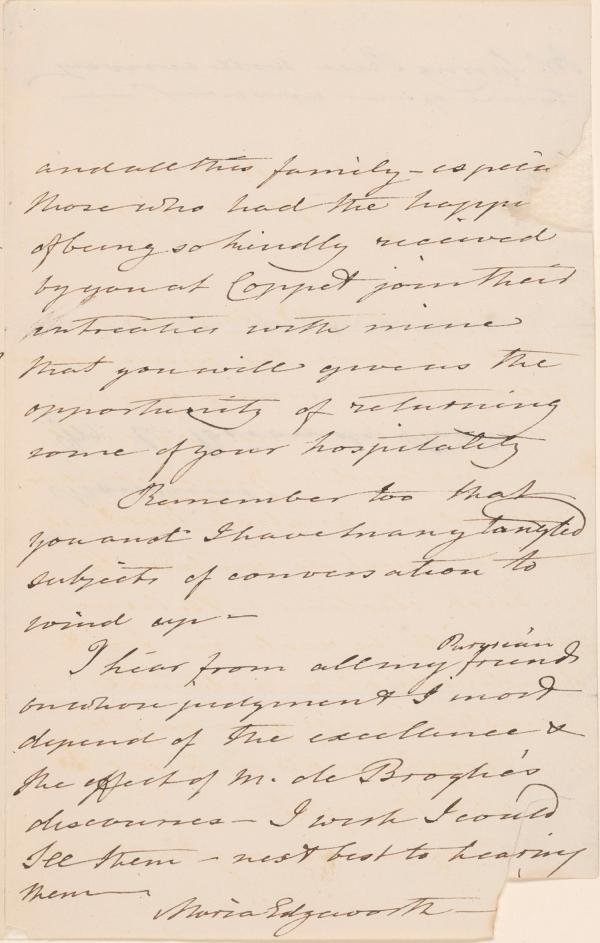 and all this family – especia
those who had the happi
of being so kindly received
by you at Coppet join their
intreaties with mine
that you will give us the
opportunity of returning
some of your hospitality
Remember too that
you and I have many tangled
subjects of conversation to
wind up –
Parisian
I hear from all my friends
on whose judgment I most
depend of the excellence &
the effect of M. de Broglie's
discourses – I wish I could
see them – next best to hearing
them –
Maria Edgeworth –